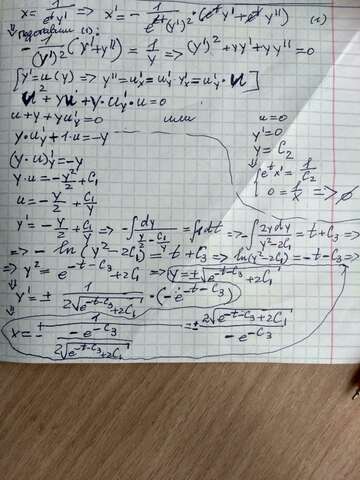 x = 1/(e^t y') => x' = - 1/(e^t (y')^2) · (e^t y' + e^t y'')
подставим (1):
- 1/(y')^2 (y' + y'') = 1/y => (y')^2 + yy' + yy'' = 0
[y' = u(y) => y'' = u'_x = u'_y · y'_x = u'_y · u]
u^2 + yu + y · u'_y · u = 0
u + y + yu'_y = 0 или u = 0
y · u'_y + 1·u = -y y' = 0
(y · u)'_y = -y y = C_2
y · u = -y^2/2 + C_1 { e^t x' = 1/C_2
u = -y/2 + C_1/y 0 = 1/x => ∅
y' = -y/2 + C_1/y => -∫ dy/(y/2 - C_1/y) = ∫dt => -∫ 2ydy/(y^2 - 2C_1) = t + C_3 =>
=> - ln(y^2 - 2C_1) = t + C_3 => ln(y^2 - 2C_1) = -t - C_3 =>
=> y^2 = e^(-t-C_3) + 2C_1 => y = ±√(e^(-t-C_3) + 2C_1)
y' = ± 1/(2√(e^(-t-C_3) + 2C_1)) · (-e^(-t-C_3))
x = ± 1/(-e^(-C_3)/(2√(e^(-t-C_3) + 2C_1))) = ± 2√(e^(-t-C_3) + 2C_1)/(-e^(-C_3))